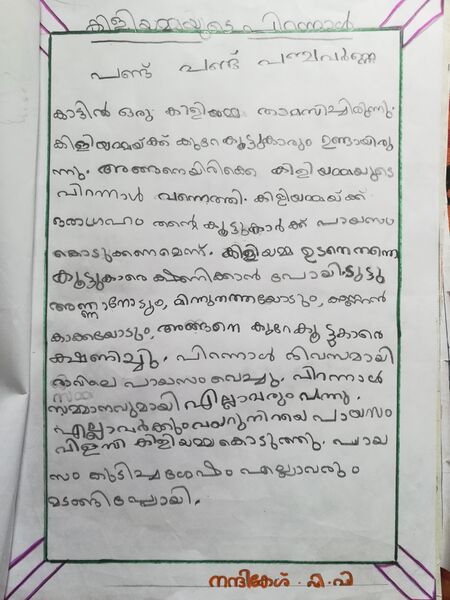 കിളിയമ്മയുടെ പിറന്നാൾ
പണ്ട് പണ്ട് പഞ്ചവർണ്ണ
കാട്ടിൽ ഒരു കിളിയമ്മ താമസിച്ചിരുന്നു.
കിളിയമ്മയ്ക്ക് കുറേ കൂട്ടുകാരും ഉണ്ടായിരു
ന്നു. അങ്ങനെയിരിക്കെ കിളിയമ്മയുടെ
പിറന്നാൾ വന്നെത്തി. കിളിയമ്മയ്ക്ക്
ഒരാഗ്രഹം തന്റെ കൂട്ടുകാർക്ക് പായസം
കൊടുക്കണമെന്ന്. കിളിയമ്മ ഉടനെതന്നെ
കൂട്ടുകാരെ ക്ഷണിക്കാൻ പോയി. ടുട്ടു
അണ്ണാനോടും, മിന്നുതത്തയോടും,
കാക്കയോടും, അങ്ങനെ കുറേ കൂട്ടുകാരെ
ക്ഷണിച്ചു. പിറന്നാൾ ദിവസമായി
രാവിലെ പായസം വെച്ചു. പിറന്നാൾ
സമ്മാനവുമായി എല്ലാവരും വന്നു.
എല്ലാവർക്കും വയറുനിറയെ പായസം
വിളമ്പി കിളിയമ്മ കൊടുത്തു. പായ
സം കുടിച്ച ശേഷം എല്ലാവരും
മടങ്ങിപ്പോയി.
നന്ദികേശ്. എ. വി